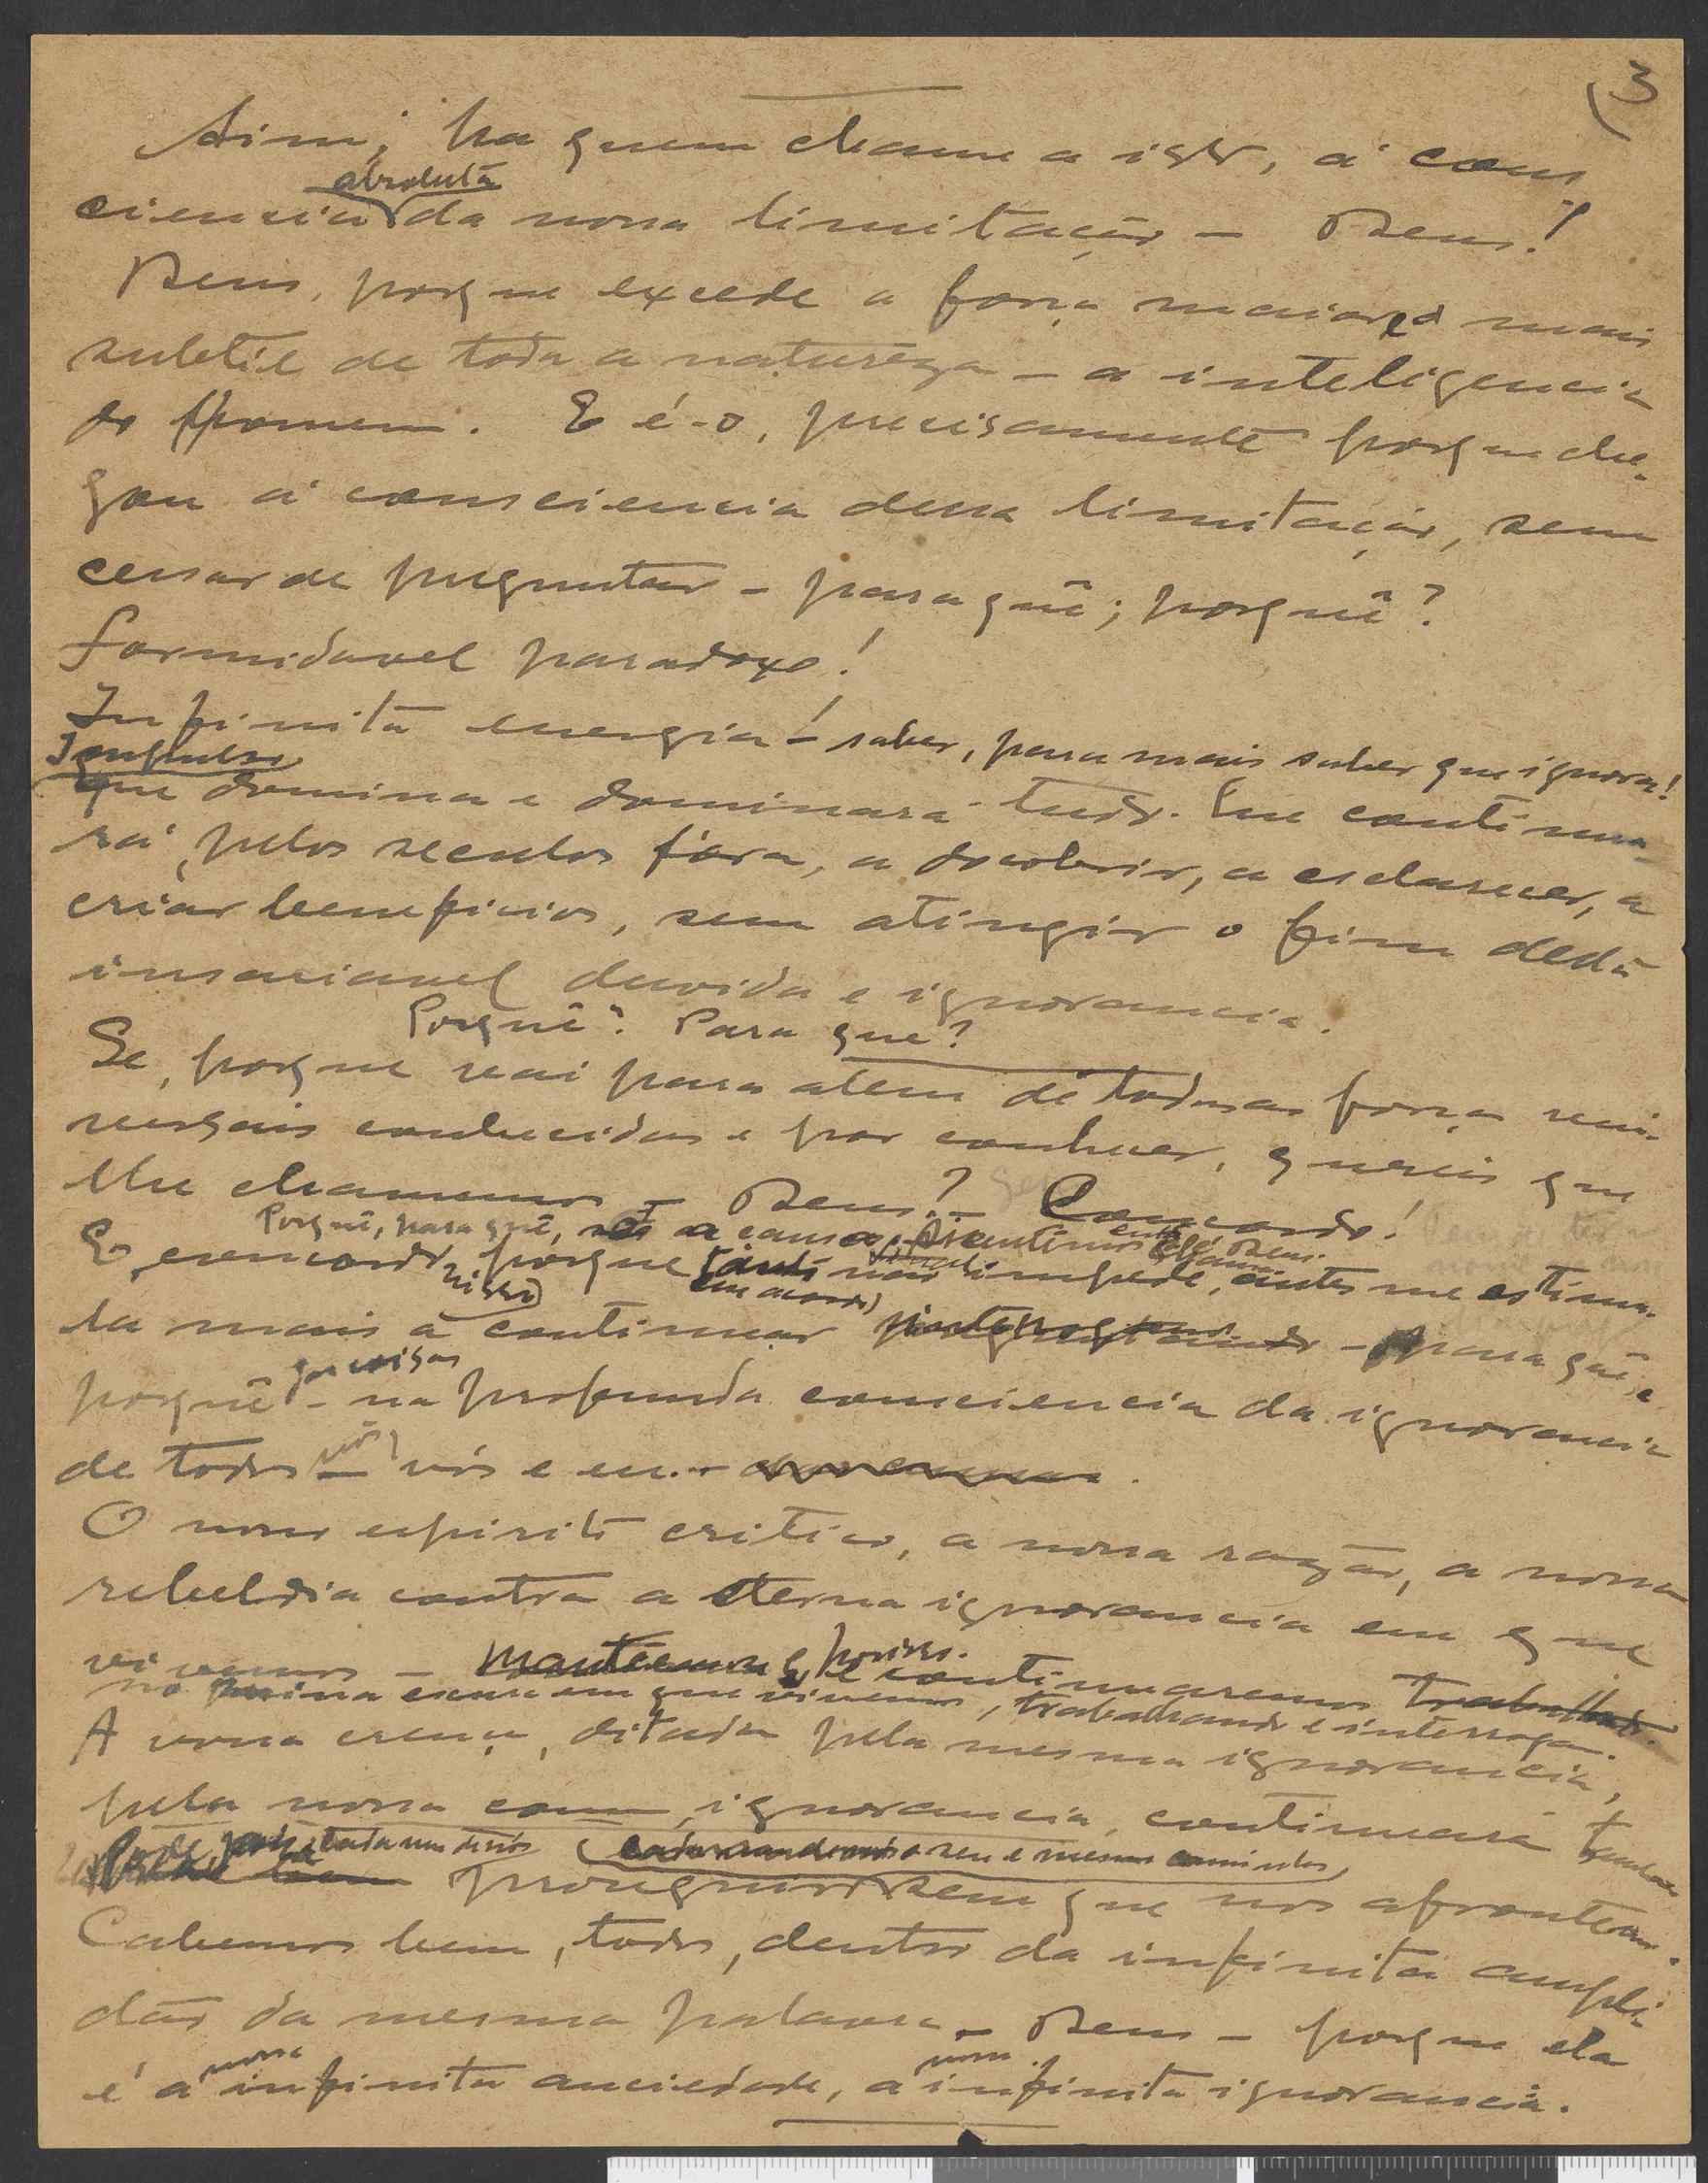 3
Sim; ha quem chame a isto, á cons
ciencia absoluta da nossa limitação - Deus!
Deus, porque excede a força maior e a mais
subtil de toda a natureza - a inteligencia
do Homem. E é-o, precisamente porque che-
gou á consciencia dessa limitação, sem
cessar de preguntar - para quê; porquê?
Formidavel paradoxo!
Infinita energia! - saber, para mais saber que ignora!
Impulso
que domina e dominará tudo. Que continua-
rá, pelos seculos fóra, a descobrir, a esclarecer, a
criar beneficios, sem atingir o fim de
insaciavel duvida e ignorancia.
Porquê? Para quê?
Se, porque vai para alem de todas as forças uni-
versais conhecidas e por conhecer, quereis que
lhe chamemos - Deus? - Concordo!
Porquê, para quê, a causa
E concordo nisso, porque não impede, antes me estimu-
la mais a continuar - para quê, e
porquê - na profunda consciencia da ignorancia
de todos nós - vós e eu.
O nosso espirito critico, a nossa razão, a nossa
rebeldia contra a eterna ignorancia em que
vivemos - e continuaremos
em que vivemos, trabalhando e interrogan.
A vossa crença, ditada pela mesma ignorancia,
pela nossa ignorancia, continuará
cada um de nós o seu e mesmo caminho
proseguir sem que nos afrontem.
Cabemos bem, todos, dentro da infinita ampli-
dão da mesma palavra - Deus - porque ela
é a nossa infinita anciedade, a nossa infinita ignorancia.